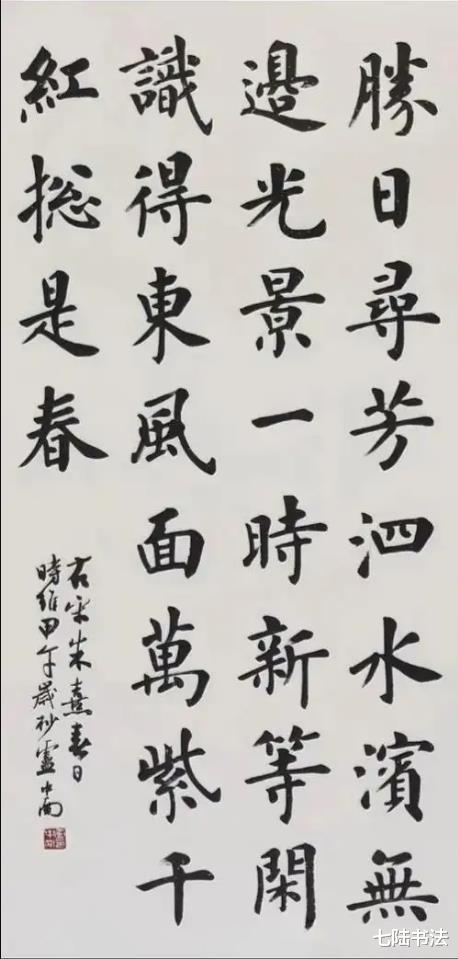 勝日尋芳泗水濱無
邊光景一時新等閑
識得東風面萬紫千
紅捴是春
右宋朱熹春日
時維甲午歲杪盧中南
七陆书法